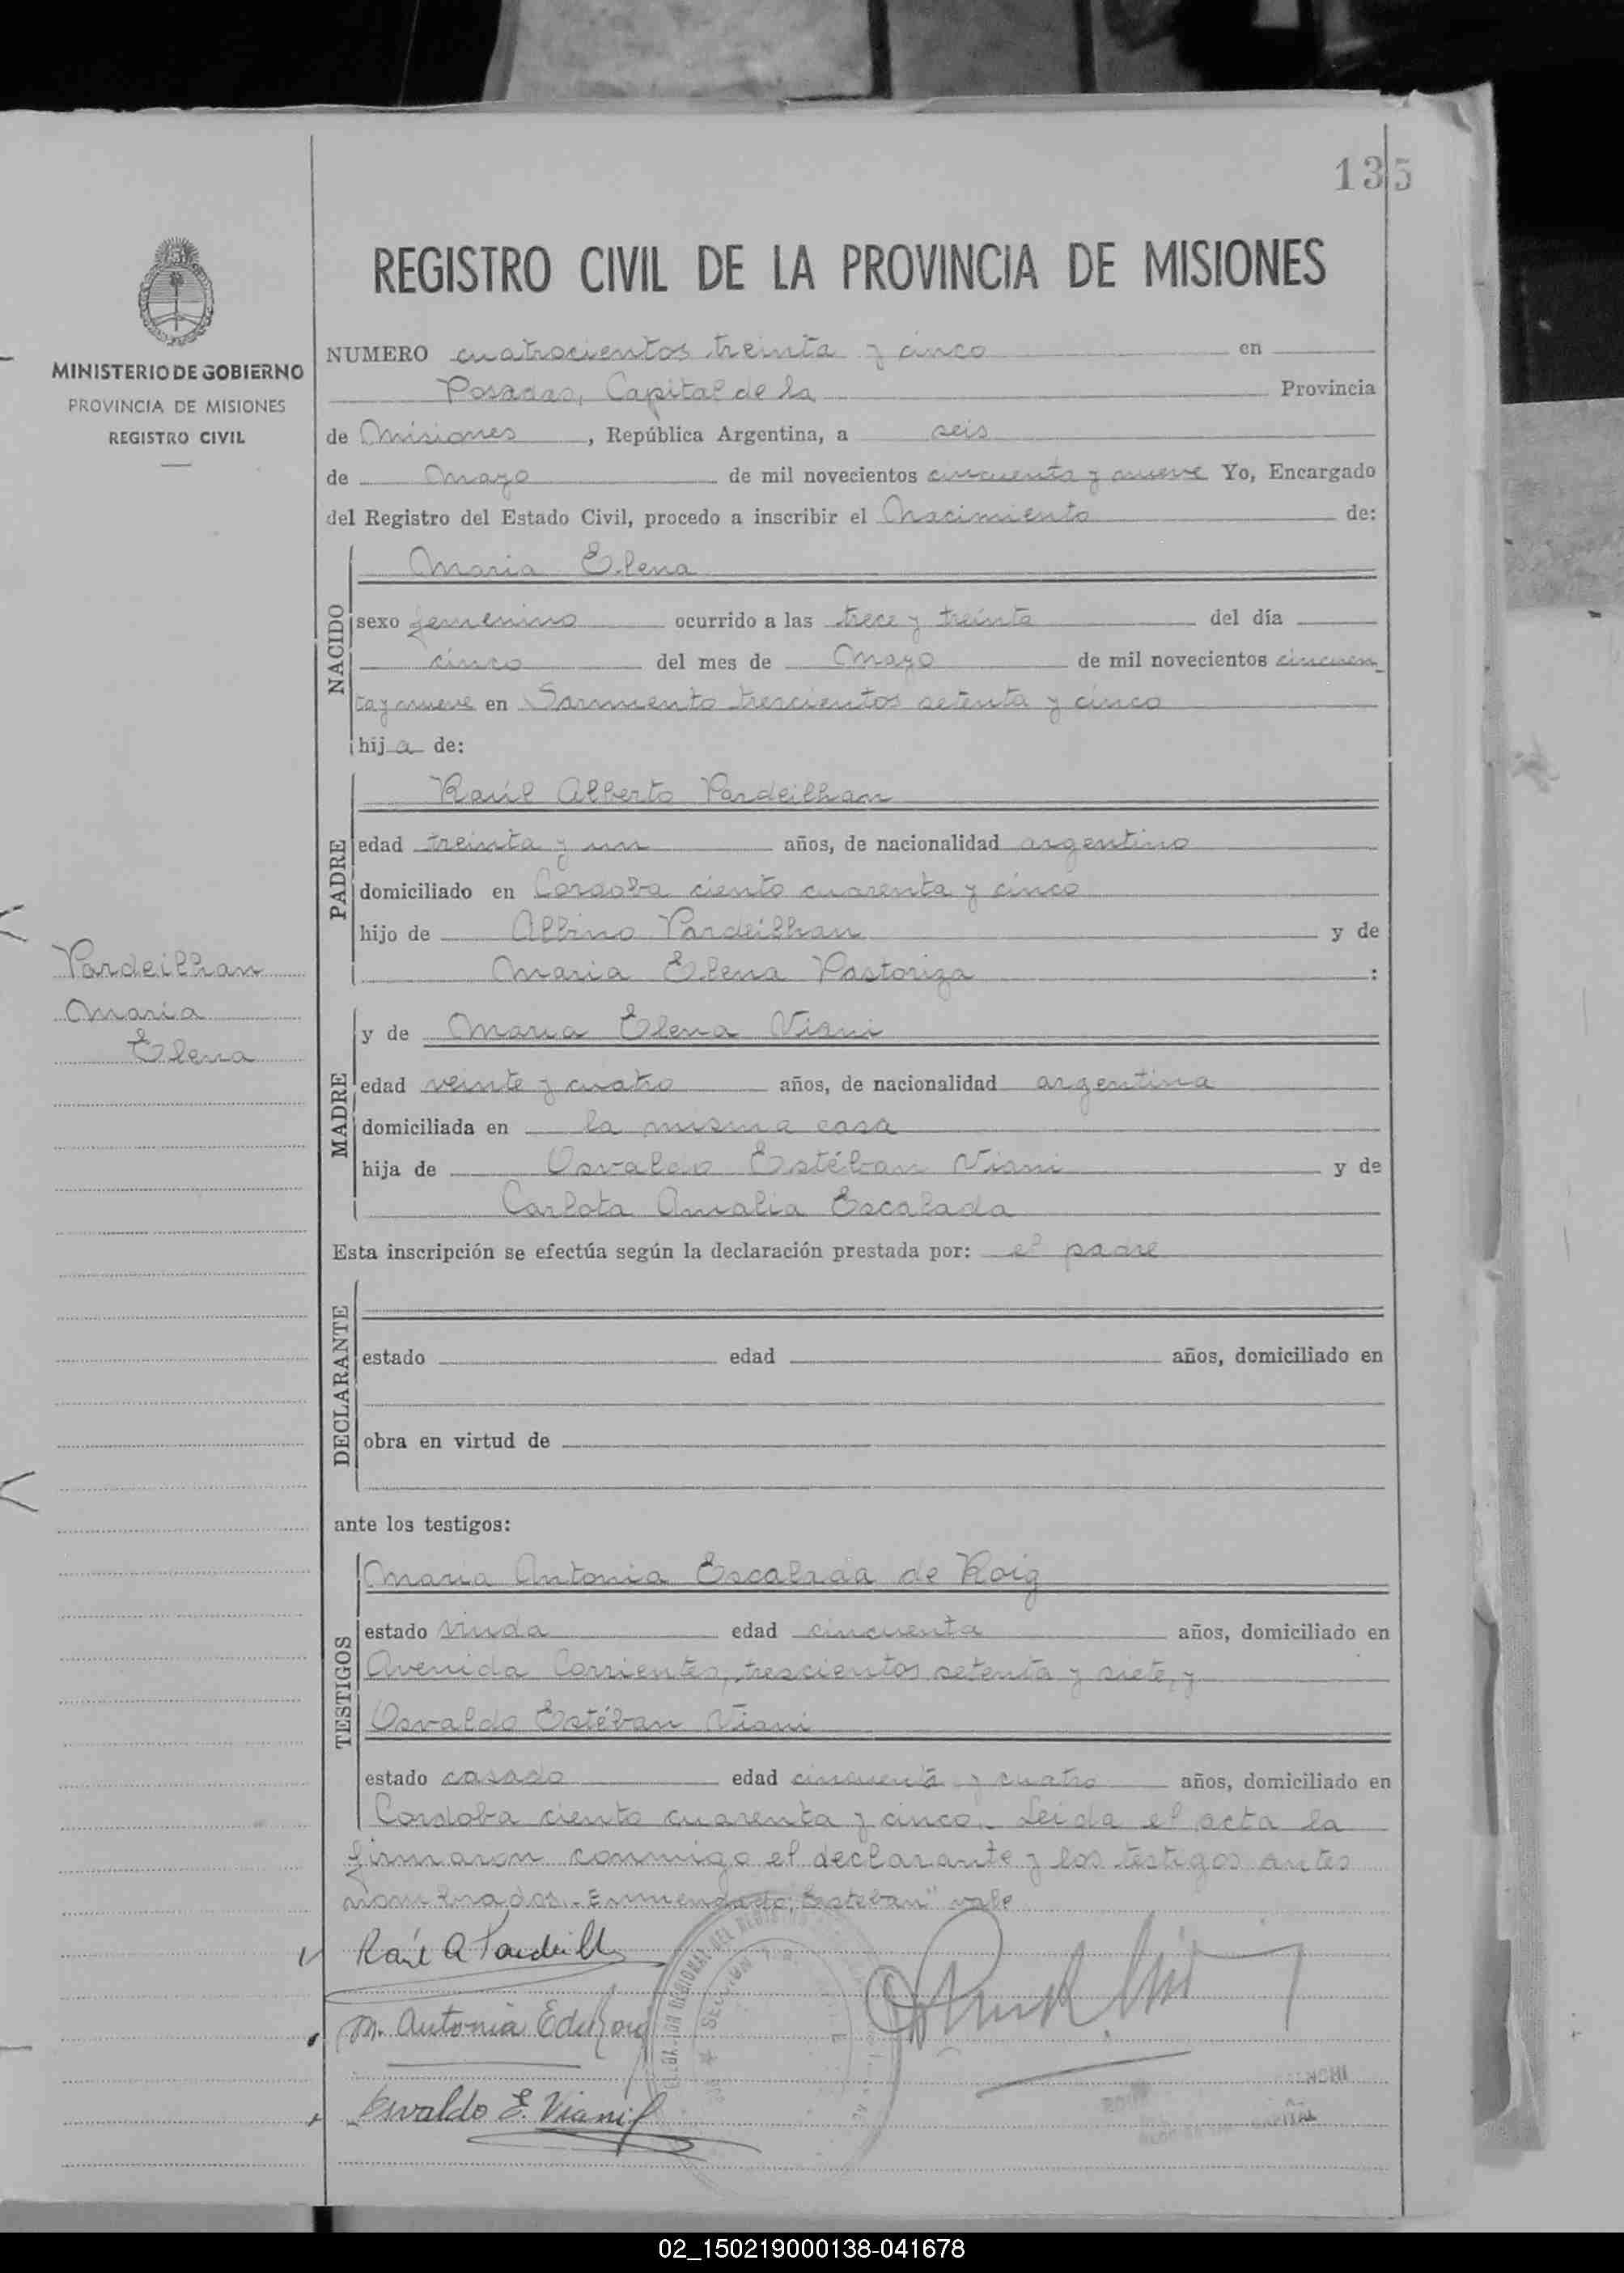 135
REGISTRO CIVIL DE LA PROVINCIA DE MISIONES
MINISTERIO DE GOBIERNO
PROVINCIA DE MISIONES
REGISTRO CIVIL
NUMERO cuatrocientos treinta y cinco en
Posadas, Capital de la Provincia
de Misiones, República Argentina, a seis
de Mayo de mil novecientos cincuenta y nueve Yo, Encargado
del Registro del Estado Civil, procedo a inscribir el Nacimiento de:
NACIDO
Maria Elena
sexo femenino ocurrido a las trece y treinta del día
cinco del mes de Mayo de mil novecientos cincuen
ta y nueve en Sarmiento trescientos setenta y cinco
hija de:
PADRE
Raúl Alberto Pardeilhan
edad treinta y un años, de nacionalidad argentino
domiciliado en Cordoba ciento cuarenta y cinco
hijo de Albino Pardeilhan y de
Maria Elena Pastoriza :
Pardeilhan
Maria
Elena
MADRE
y de Maria Elena Viani
edad veinte y cuatro años, de nacionalidad argentina
domiciliada en la misma casa
hija de Osvaldo Estéban Viani y de
Carlota Amalia Escalada
Esta inscripción se efectúa según la declaración prestada por: el padre
DECLARANTE
estado edad años, domiciliado en
obra en virtud de
ante los testigos:
TESTIGOS
Maria Antonia Escalada de Roig
estado viuda edad cincuenta años, domiciliado en
Avenida Corrientes, trescientos setenta y siete, y
Osvaldo Estéban Viani
estado casado edad cincuenta y cuatro años, domiciliado en
Cordoba ciento cuarenta y cinco. Leida el acta la
firmaron conmigo el declarante y los testigos antes
nombrados.- Enmendado: "Esteban" vale
Raúl A Pardeilh
M. Antonia E de Roig
Osvaldo E. Viani
DEL REGISTRO
SECCION
CAPITAL
02_150219000138-041678